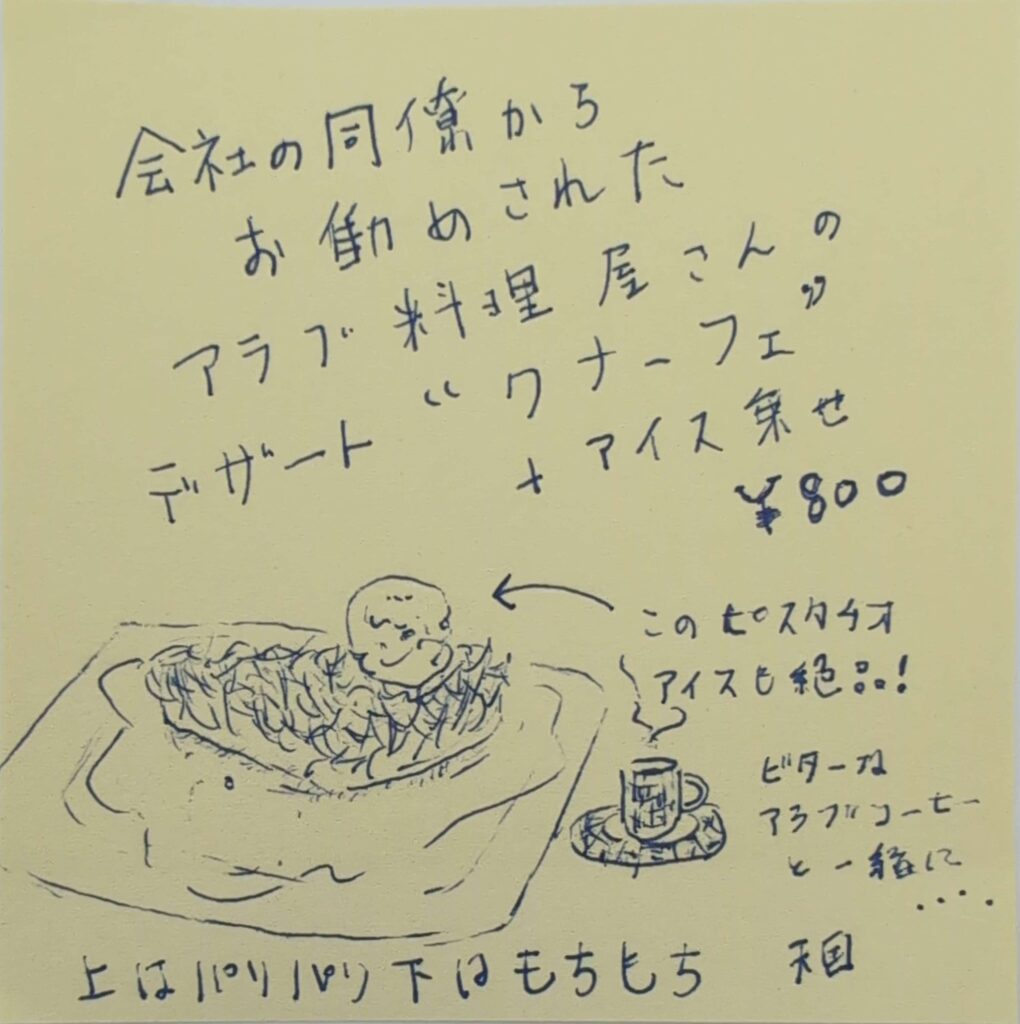 会社の同僚から
お勧めされた
アラブ料理屋さんの
デザート“クナーフェ”
+アイス乗せ
¥800
このピスタチオ
アイスも絶品！
ビターな
アラブコーヒー
と一緒に
....
上はパリパリ下はもちもち 天国